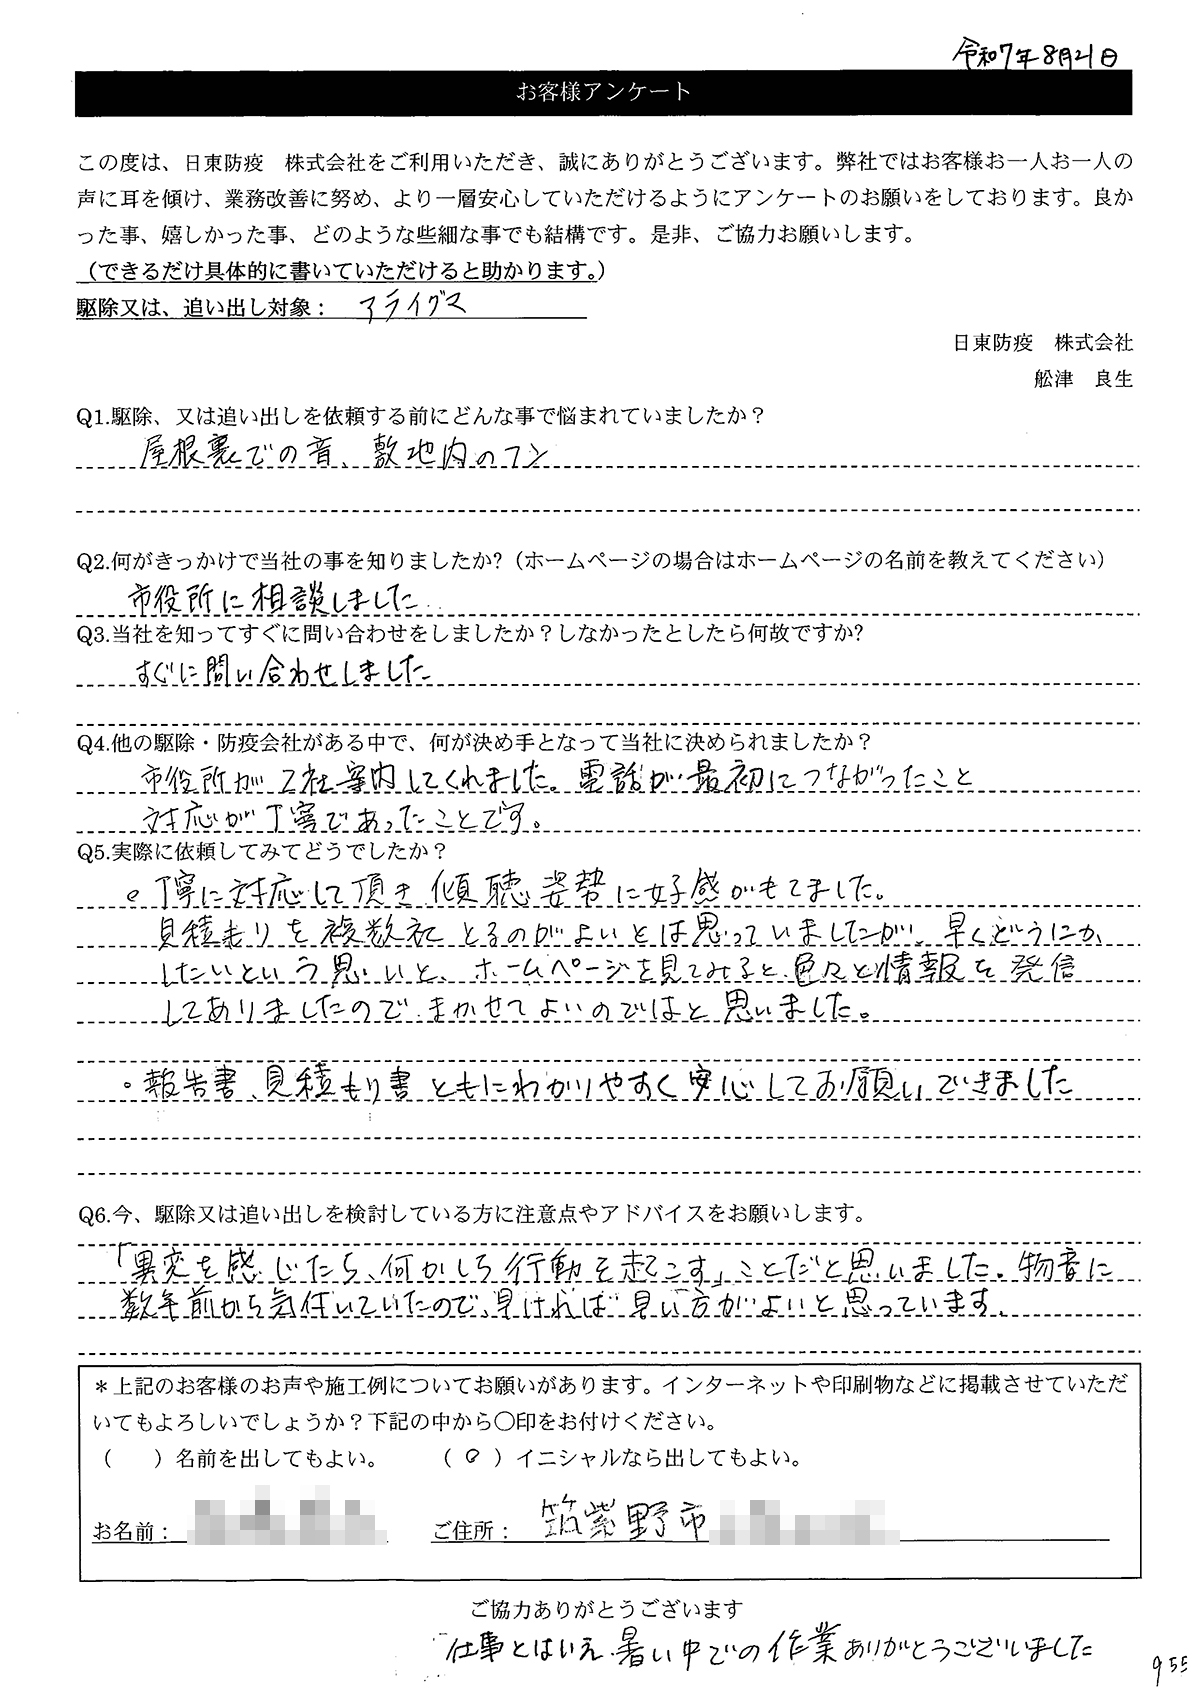 令和7年8月21日
お客様アンケート
この度は、日東防疫　株式会社をご利用いただき、誠にありがとうございます。弊社ではお客様お一人お一人の
声に耳を傾け、業務改善に努め、より一層安心していただけるようにアンケートのお願いをしております。良か
った事、嬉しかった事、どのような些細な事でも結構です。是非、ご協力お願いします。
（できるだけ具体的に書いていただけると助かります。）
駆除又は、追い出し対象：　アライグマ
日東防疫　株式会社
舩津　良生
Q1.駆除、又は追い出しを依頼する前にどんな事で悩まれていましたか？
屋根裏での音、敷地内のフン
Q2.何がきっかけで当社の事を知りましたか?（ホームページの場合はホームページの名前を教えてください）
市役所に相談しました
Q3.当社を知ってすぐに問い合わせをしましたか？しなかったとしたら何故ですか?
すぐに問い合わせしました
Q4.他の駆除・防疫会社がある中で、何が決め手となって当社に決められましたか？
市役所が2社案内してくれました。電話が最初につながったこと
対応が丁寧であったことです。
Q5.実際に依頼してみてどうでしたか？
。丁寧に対応して頂き傾聴姿勢に好感がもてました。
見積もりを複数社とるのがよいとは思っていましたが、早くどうにか
したいという思いと、ホームページを見てみると色々と情報を発信
してありましたので、まかせてよいのではと思いました。
。報告書、見積もり書ともにわかりやすく安心してお願いできました
Q6.今、駆除又は追い出しを検討している方に注意点やアドバイスをお願いします。
「異変を感じたら、何かしら行動を起こす」ことだと思いました。物音に
数年前から気付いていたので、早ければ早い方がよいと思っています。
＊上記のお客様のお声や施工例についてお願いがあります。インターネットや印刷物などに掲載させていただ
いてもよろしいでしょうか？下記の中から〇印をお付けください。
（　　）名前を出してもよい。　（ ○ ）イニシャルなら出してもよい。
お名前：　ご住所：　筑紫野市
ご協力ありがとうございます
仕事とはいえ、暑い中での作業ありがとうございました
955